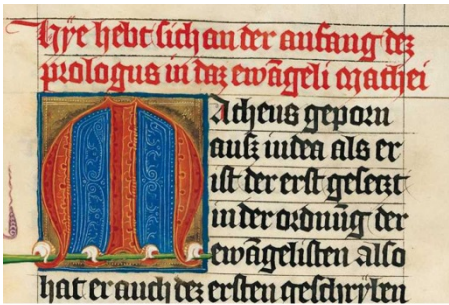 Hye hebt sich an der anfang dez
prologus in daz ewãgeli mathei
Matheus geporn
auß iudea als er
ist der erst geseczt
in der ordnũg der
ewãgelisten also
hat er auch dez ersten geschryben